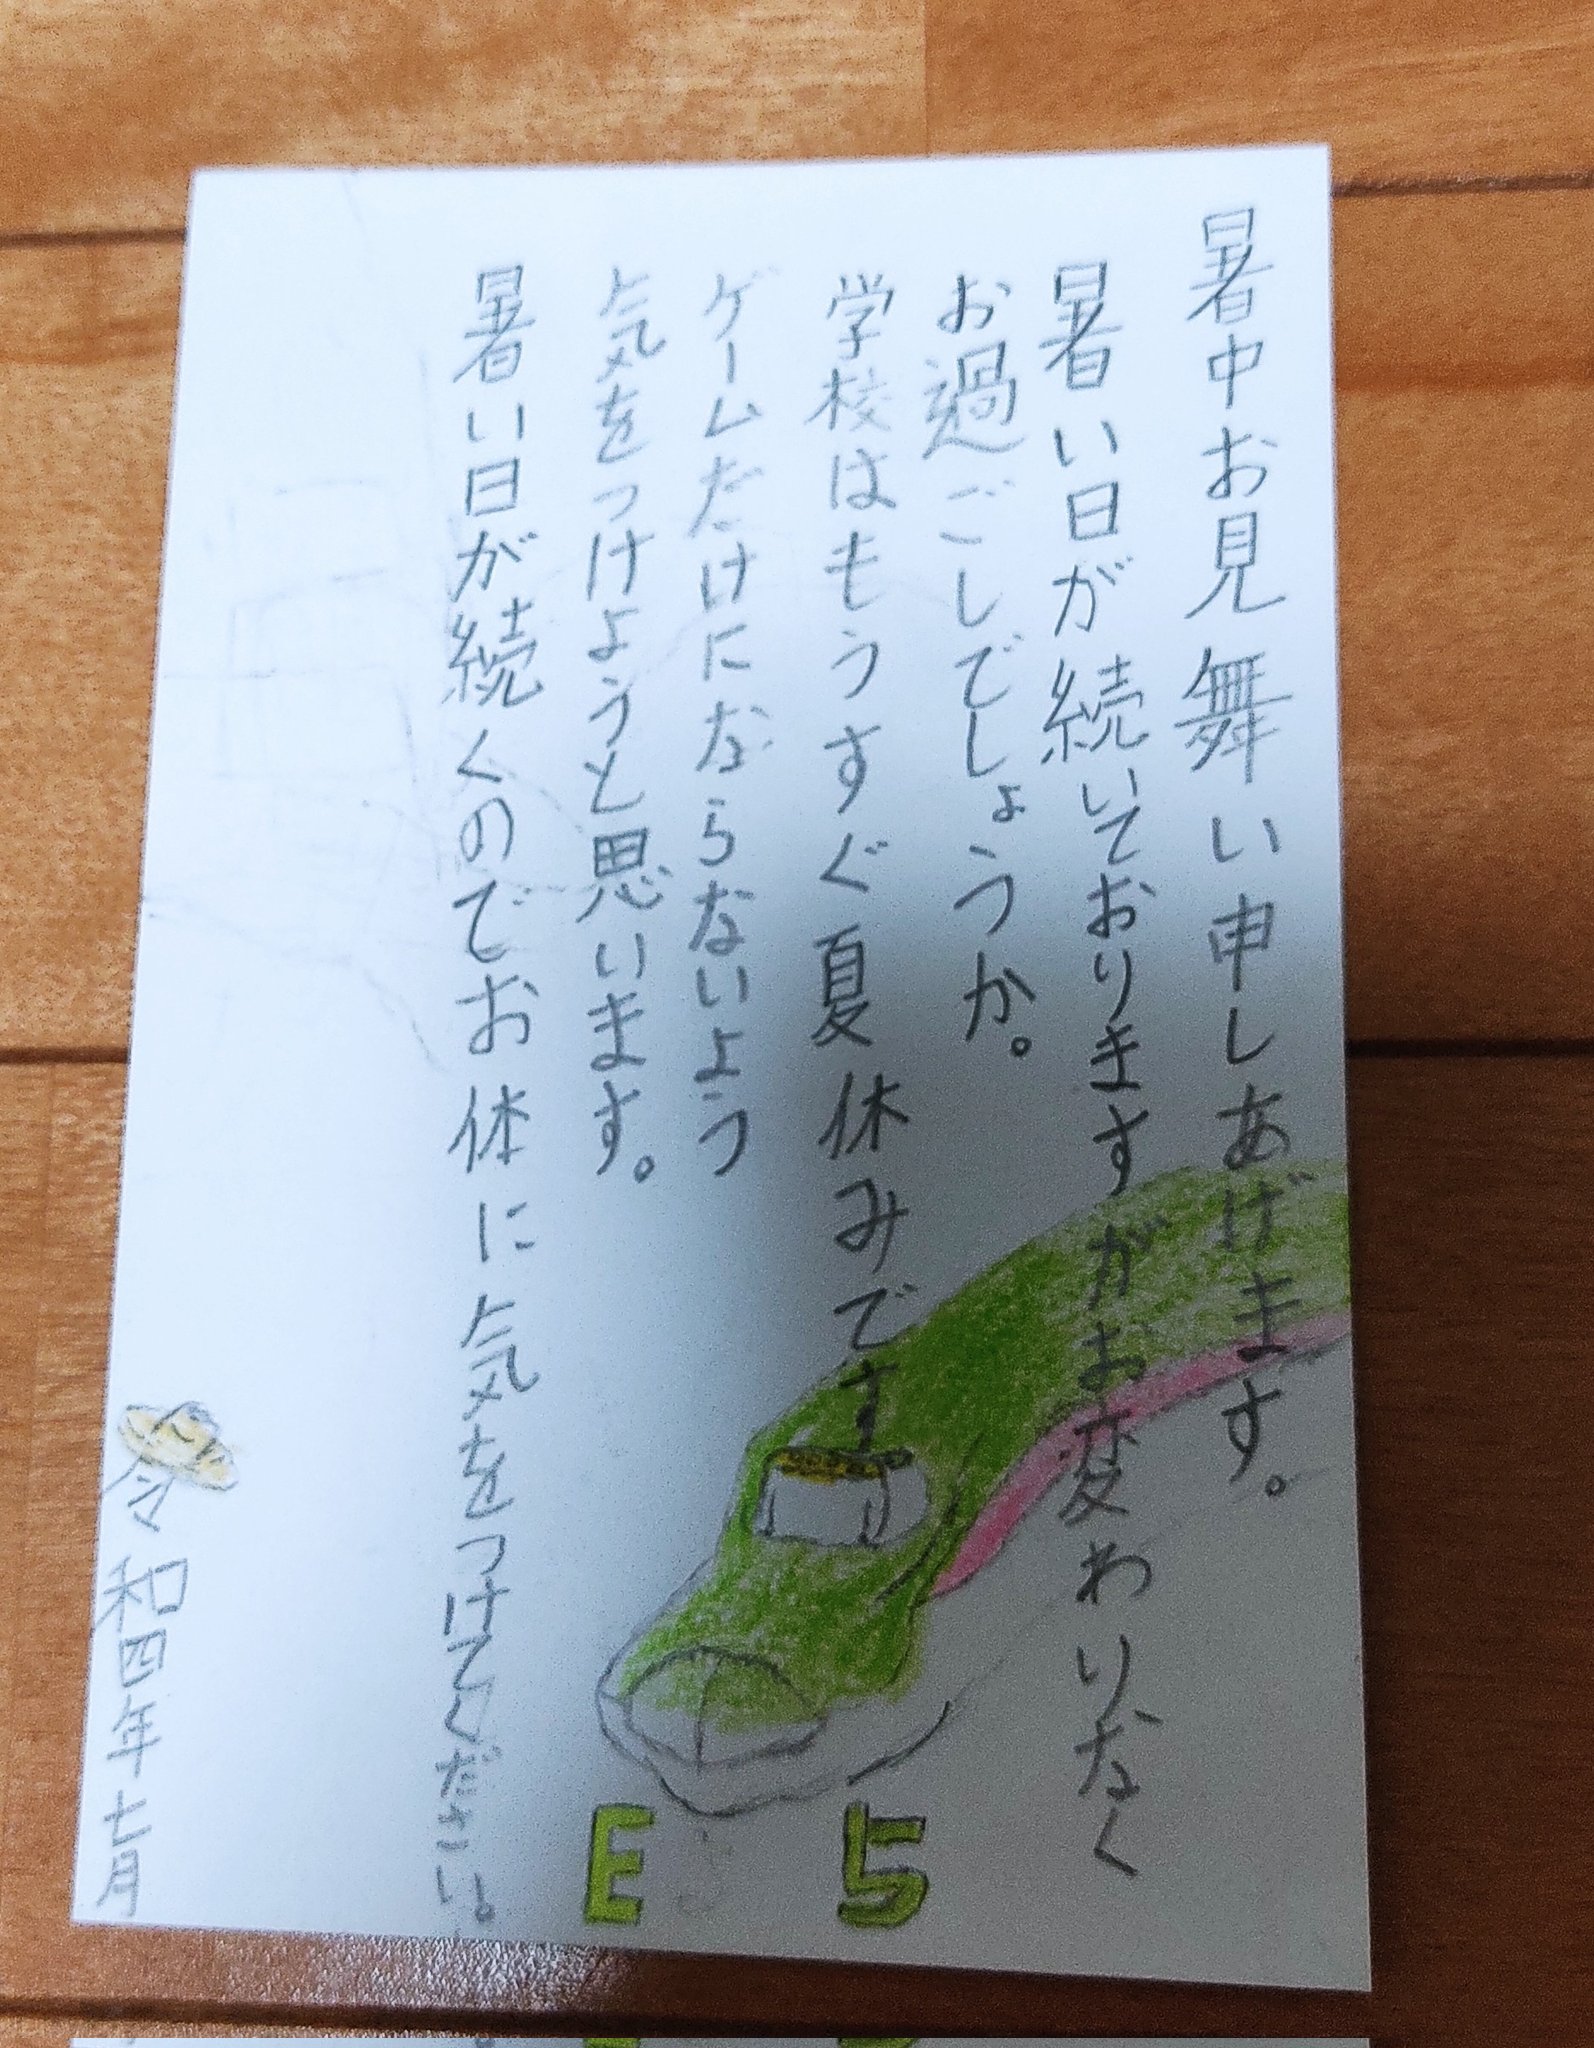 暑中お見舞い申しあげます。
暑い日が続いておりますがお変わりなく
お過ごしでしょうか。
学校はもうすぐ夏休みです
ゲームだけにならないよう
気をつけようと思います。
暑い日が続くのでお体に気をつけてください。
令和四年七月
E5